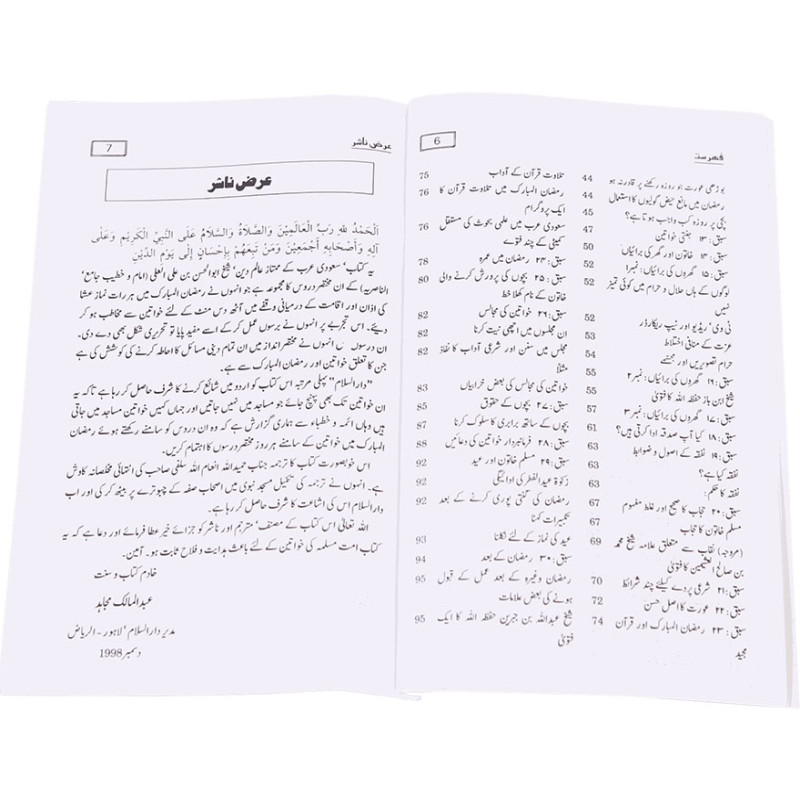 6
فهرست
بوڑھی عورت جو روزہ رکھنے پر قادر نہ ہو 44
رمضان میں مانع حیض گولیوں کا استعمال 44
بچی پر روزہ کب واجب ہوتا ہے؟ 47
سبق: ۱۳ جنتی خواتین
سبق: ۱۴ خواتین اور گھر کی برائیاں 50
سبق: ۱۵ گھروں کی برائیاں: نمبر۱ 52
لوگوں کے ہاں حلال و حرام میں کوئی تمیز
نہیں
ٹی وی' ریڈیو اور ٹیپ ریکارڈر 52
عزت کے منافی اختلاط 53
حرام تصویریں اور مجسمے 54
سبق: ۱۶ گھروں کی برائیاں: نمبر ۲ 55
شیخ ابن باز حفظہ اللہ کا فتویٰ
سبق: ۱۷ گھروں کی برائیاں: نمبر ۳ 57
سبق: ۱۸ کیا آپ صدقہ ادا کرتی ہیں؟ 61
سبق: ۱۹ نفقہ کے اصول و ضوابط 63
نفقہ کیا ہے؟
نفقہ کا حکم: 63
سبق: ۲۰ حجاب کا صحیح اور غلط مفہوم 67
مسلم خاتون کا حجاب 67
(مروجہ) نقاب سے متعلق علامہ شیخ محمد 69
بن صالح العثیمین کا فتویٰ
سبق: ۲۱ شرعی پردے کیلئے چند شرائط 70
سبق: ۲۲ عورت کا اصل حسن 72
سبق: ۲۳ رمضان المبارک اور قرآن 74
مجید
تلاوت قرآن کے آداب 75
رمضان المبارک میں تلاوت قرآن کا 76
ایک پروگرام
سعودی عرب میں علمی بحوث کی مستقل 76
کمیٹی کے چند فتوے
سبق: ۲۴ رمضان میں عمرہ 78
سبق: ۲۵ بچوں کی پرورش کرنے والی 80
خاتون کے نام کھلا خط
سبق: ۲۶ خواتین کی مجالس 82
ان مجلسوں میں اچھی نیت کرنا 82
مجلس میں سنن اور شرعی آداب کا نفاذ 82
مثلاً
خواتین کی مجالس کی بعض خرابیاں 83
سبق: ۲۷ بچوں کے حقوق 85
بچوں کے ساتھ برابری کا سلوک کرنا 87
سبق: ۲۸ فرمانبردار خواتین کی دعائیں 88
سبق: ۲۹ مسلم خاتون اور عید 92
زکوٰۃ عیدالفطر کی ادائیگی 92
رمضان کی گنتی پوری کرنے کے بعد 92
تکبیرات کہنا
عید کی نماز کے لئے نکلنا 93
سبق: ۳۰ رمضان کے بعد 94
رمضان وغیرہ کے بعد عمل کے قبول 95
ہونے کی بعض علامات
شیخ عبداللہ بن جبرین حفظہ اللہ کا ایک 95
فتویٰ
عرض ناشر
7
عرض ناشر
الْحَمْدُ للهِ رَبِّ الْعَالَمِيْنَ وَالصَّلَاةُ وَالسَّلَامُ عَلَى النَّبِيِّ الْكَرِيْمِ وَعَلَى
آلِهِ وَأَصْحَابِهِ أَجْمَعِيْنَ وَمَنْ تَبِعَهُمْ بِإِحْسَانٍ إِلَى يَوْمِ الدِّيْنِ
یہ کتاب' سعودی عرب کے ممتاز عالم دین' شیخ ابوالحسن بن علی العلی (امام و خطیب جامع'
الناصریہ) کے ان مختصر دروس کا مجموعہ ہے جو انہوں نے رمضان المبارک میں ہر رات نماز عشا
کی اذان اور اقامت کے درمیانی وقفے میں آٹھ دس منٹ کے لئے خواتین سے مخاطب ہو کر
دیئے۔ اس تجربے پر انہوں نے برسوں عمل کر کے اسے مفید پایا تو تحریری شکل بھی دے دی۔
ان دروس میں انہوں نے مختصر انداز میں ان تمام دینی مسائل کا احاطہ کرنے کی کوشش کی ہے
جن کا تعلق خواتین اور رمضان المبارک سے ہے۔
"دارالسلام" پہلی مرتبہ اس کتاب کو اردو میں شائع کرنے کا شرف حاصل کر رہا ہے تاکہ یہ
ان خواتین تک بھی پہنچ جائے جو مساجد میں نہیں جاتیں اور جہاں کہیں خواتین مساجد میں جاتی
ہیں وہاں ائمہ و خطباء سے ہماری گزارش ہے کہ وہ ان دروس کو سامنے رکھتے ہوئے رمضان
المبارک میں خواتین کے سامنے ہر روز مختصر درسوں کا اہتمام کریں۔
اس خوبصورت کتاب کا ترجمہ جناب حمیداللہ انعام اللہ سلفی صاحب کی انتہائی مخلصانہ کاوش
ہے۔ انہوں نے ترجمہ کی تکمیل مسجد نبوی میں اصحاب صفہ کے چبوترے پر بیٹھ کر کی اور اب
دارالسلام اس کی اشاعت کا شرف حاصل کر رہا ہے۔
اللہ تعالیٰ اس کتاب کے مصنف' مترجم اور ناشر کو جزائے خیر عطا فرمائے اور دعا ہے کہ یہ
کتاب امت مسلمہ کی خواتین کے لئے باعث ہدایت و فلاح ثابت ہو۔ آمین۔
خادم کتاب و سنت
عبدالمالک مجاہد
مدیر دارالسلام' لاہور - الریاض
دسمبر 1998